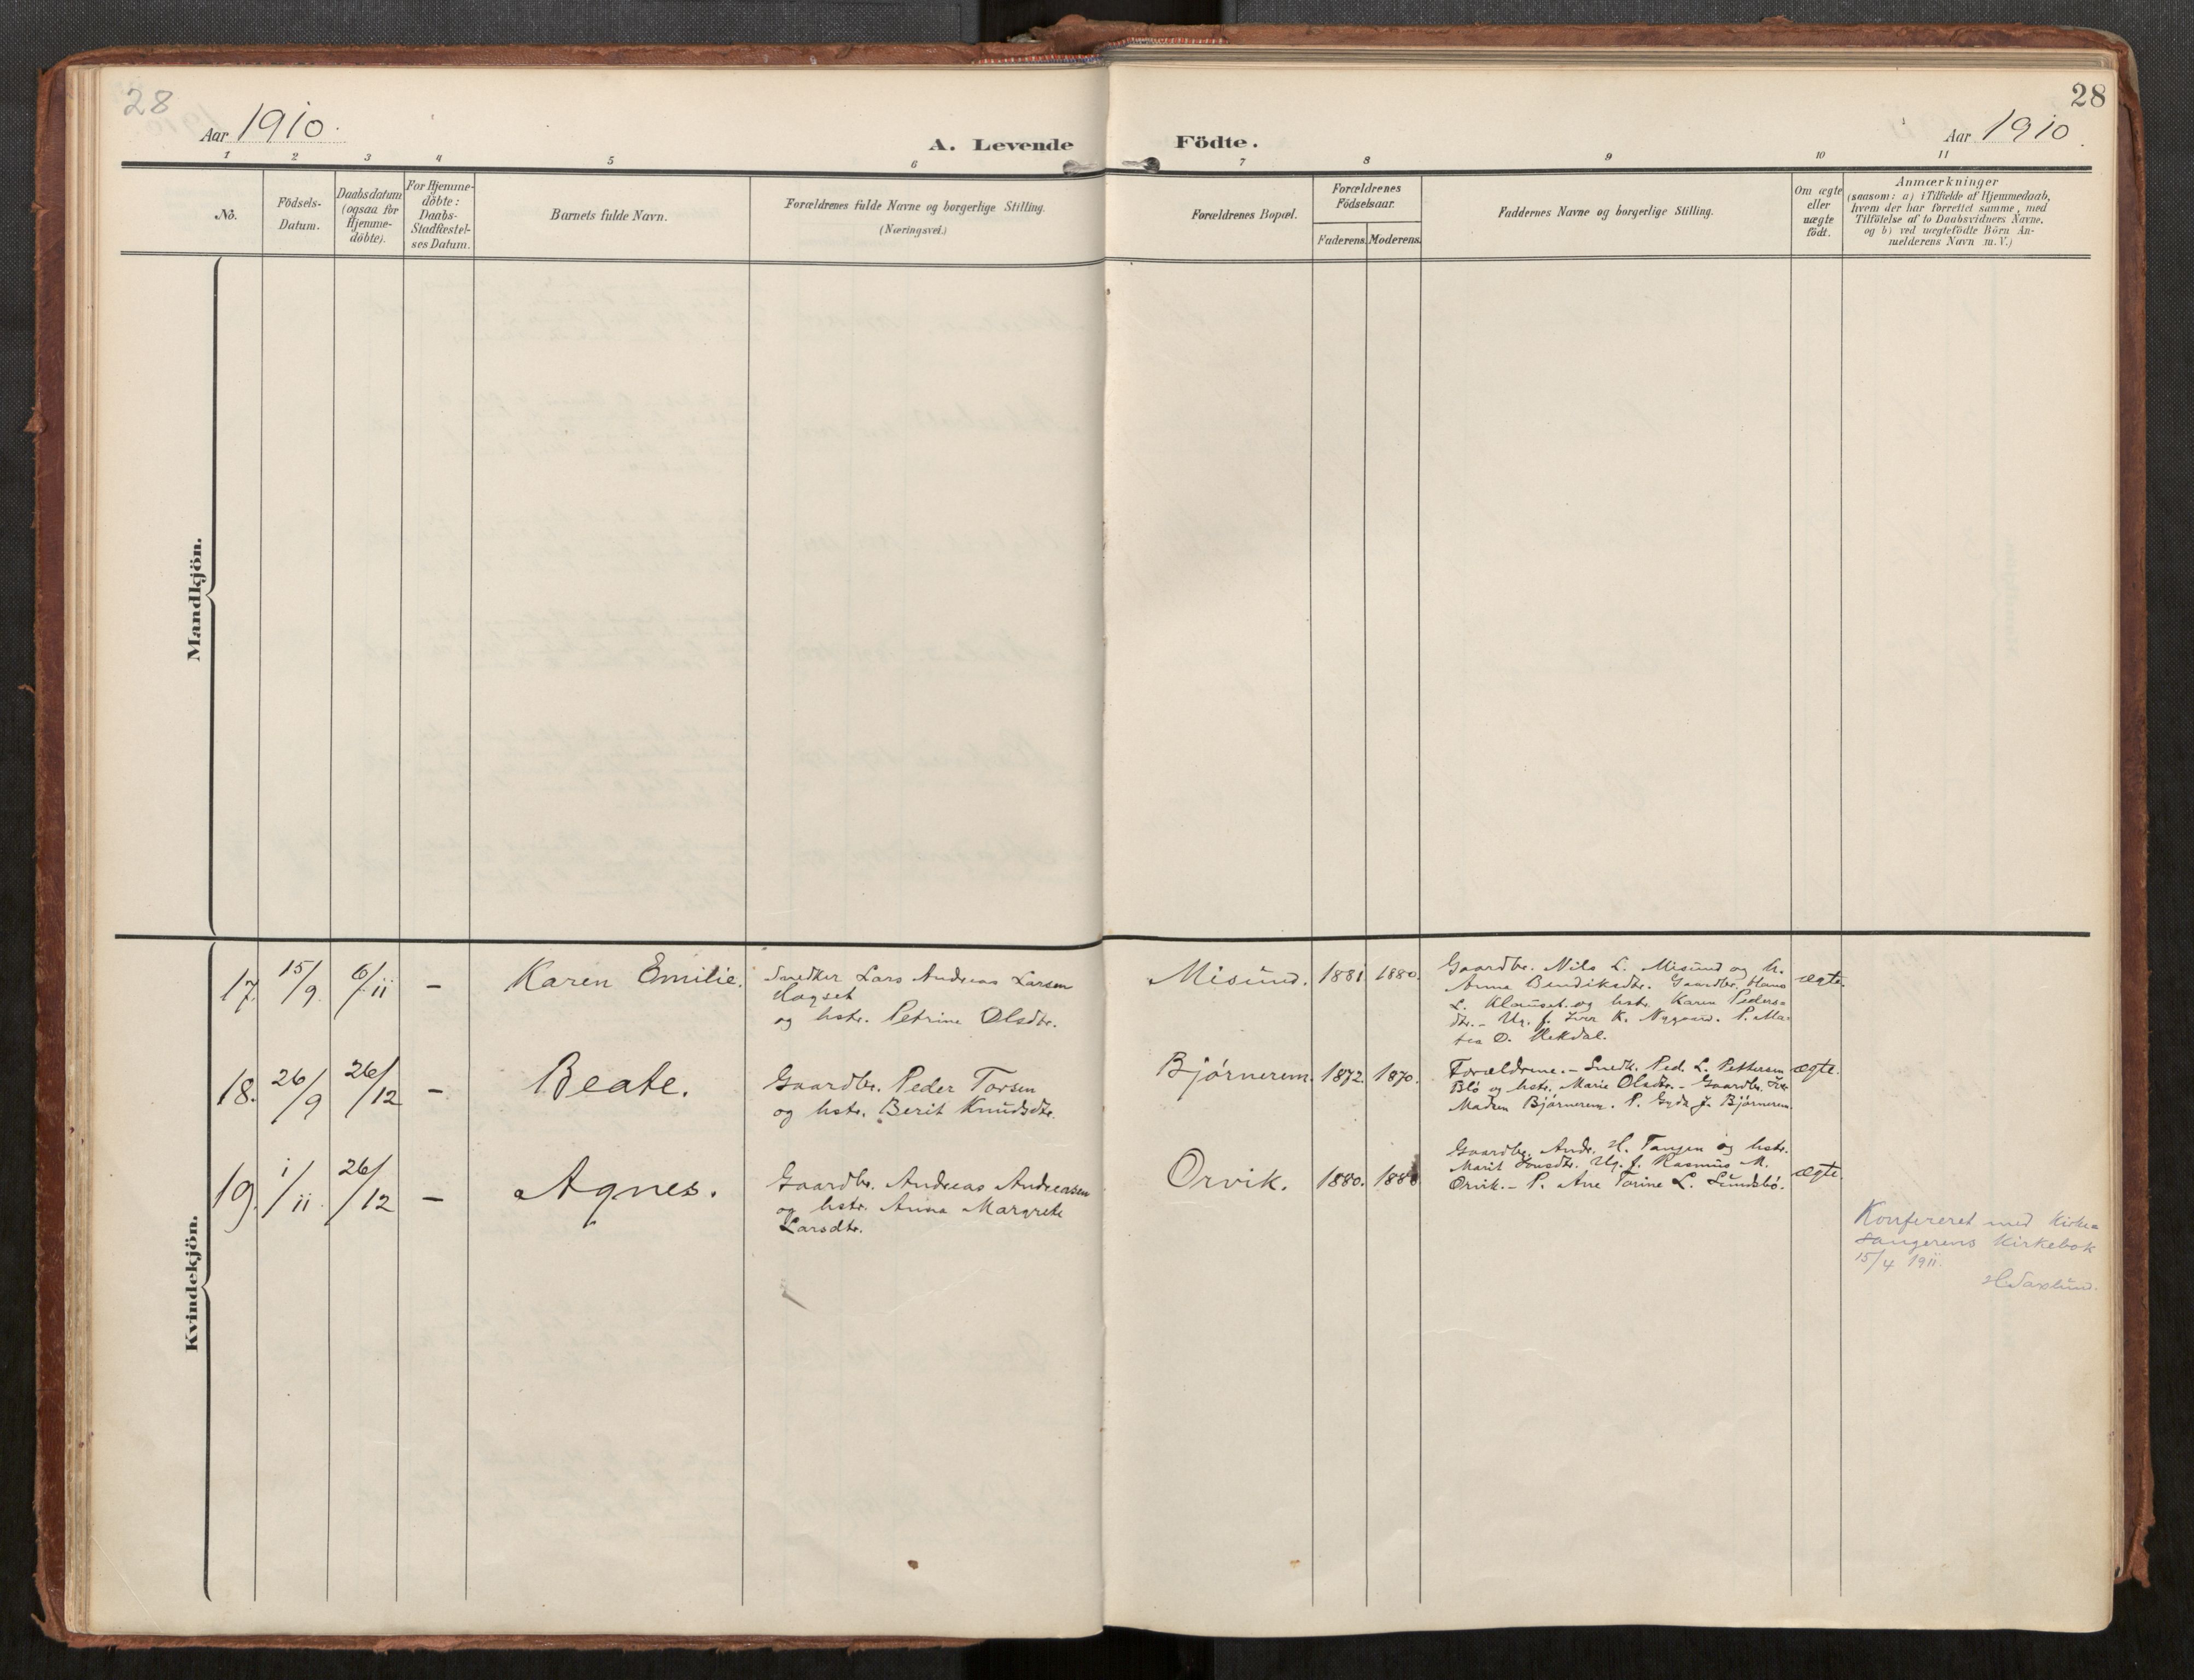 28
28
Aar 1910.
Aar 1910.
A. Levende Födte.
1 2 3 4 5 6 7 8 9 10 11
No.
Födsels-
Datum.
Daabsdatum
(ogsaa for
Hjemme-
döbte).
For Hjemme-
döbte:
Daabs-
Stadfæstel-
ses Datum.
Barnets fulde Navn.
Forældrenes fulde Navne og borgerlige Stilling.
(Næringsvei.)
Forældrenes Bopæl.
Forældrenes
Födselsaar.
Faderens. Moderens.
Faddernes Navne og borgerlige Stilling.
Om ægte
eller
uægte
födt.
Anmærkninger
(saasom: a) i Tilfælde af Hjemmedaab,
hvem der har forrettet samme, med
Tilföielse af to Daabsvidners Navne,
og b) ved uægtefödte Börn An-
melderens Navn m. V.)
Mandkjön.
Kvindekjön.
17. 15/9 6/11 – Karen Emilie.
Snedker Lars Andreas Larsen
Hagset
og hstr. Petrine Olsdtr.
Misund. 1881. 1880.
Gaardbr. Nils L. Misund og h.
Anna Bendiksdtr. Gaardbr. Hans
L. Klauset og hstr. Karen Peders-
dtr. – Ug. f. Iver K. Nygaard. P. Ma-
tea O. Rekdal.
ægte.
18. 26/9 26/12 – Beate.
Gaardbr. Peder Torsen
og hstr. Berit Knudsdtr.
Bjørnerem. 1872. 1870.
Forældrene. – Snedk. Ped. L. Pettersen
Blø og hstr. Marie Olsdtr. – Gaardbr. Iver
Madsen Bjørnerem. P. Gyda J. Bjørnerem.
ægte.
19. 1/11 26/12 – Agnes.
Gaardbr. Andreas Andreassen
og hstr. Anna Margrete
Larsdtr.
Orvik. 1880. 1880
Gaardbr. Andr. H. Tangen og hstr.
Marit Jonsdtr. Ug. f. Rasmus M.
Orvik. – P. Ane Torine L. Sundsbø.
ægte.
Konfereret med Kirke-
sangerens Kirkebok
15/4 1911.
H. Saxlund.